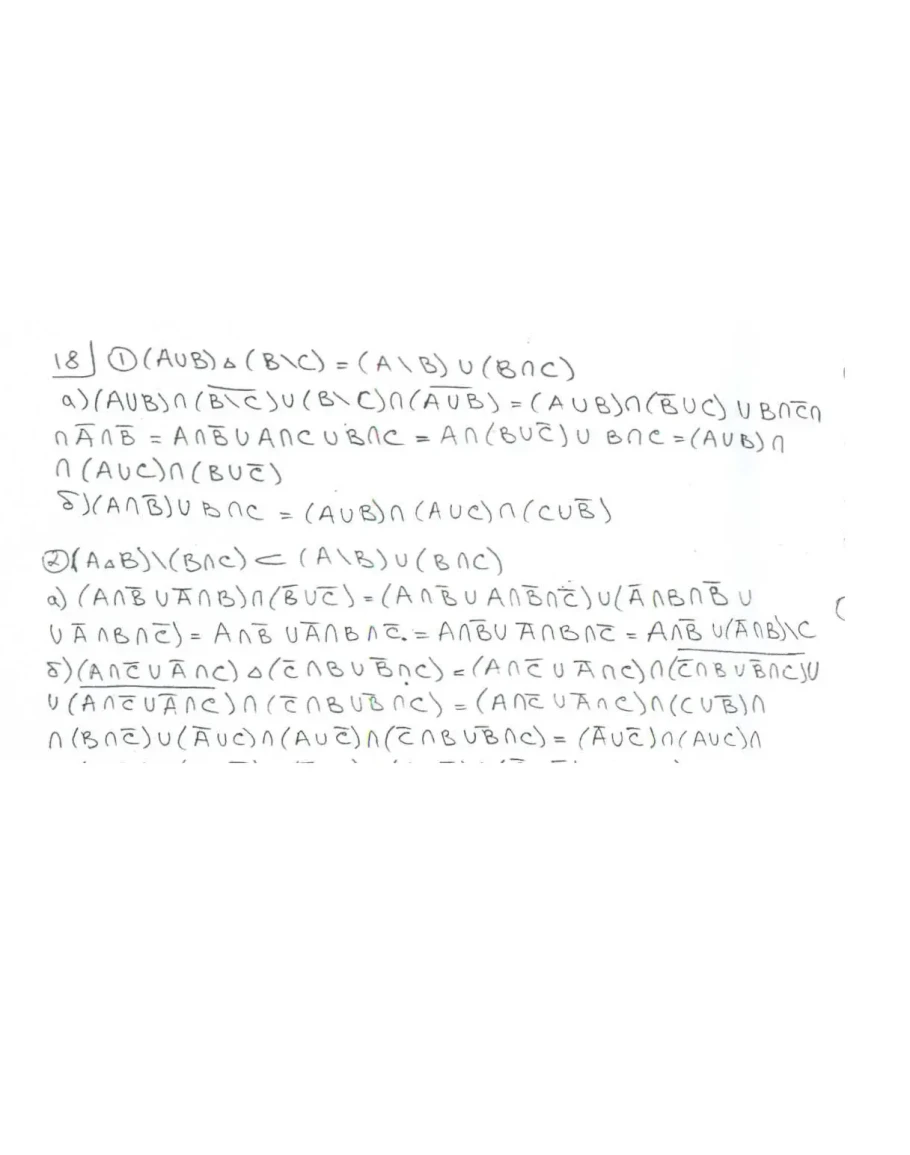 18 ① (A∪B) △ (B\C) = (A \ B) ∪ (B∩C)
а) (A∪B)∩(\overline{B\C})∪(B\C)∩(\overline{A∪B}) = (A∪B)∩(B̅∪C) ∪ B∩C̅∩
∩ A̅∩B̅ = A∩B̅ ∪ A∩C ∪ B∩C = A∩(B∪C̅)∪ B∩C = (A∪B)∩
∩ (A∪C)∩(B∪C̅)
δ)(A∩B̅)∪ B∩C = (A∪B)∩(A∪C)∩(C∪B̅)
② (A△B)\(B∩C) ⊂ (A\B)∪(B∩C)
а) (A∩B̅ ∪ A̅∩B)∩(B̅∪C̅) = (A∩B̅ ∪ A∩B̅∩C̅)∪(A̅∩B∩B̅ ∪
∪ A̅∩B∩C̅) = A∩B̅ ∪ A̅∩B∩C̅. = A∩B̅∪ A̅∩B∩C̅ = A∩B̅ ∪(A̅∩B)\C
δ)(A∩C̅ ∪ A̅∩C) △ (C̅∩B ∪ B̅∩C) = (A∩C̅ ∪ A̅∩C)∩(\overline{C̅∩B∪B̅∩C})∪
∪(\overline{A∩C̅∪A̅∩C})∩(C̅∩B∪B̅∩C) = (A∩C̅ ∪ A̅∩C)∩(C∪B̅)∩
∩ (B∩C̅)∪(A̅∪C)∩(A∪C̅)∩(C̅∩B∪B̅∩C) = (A̅∪C̅)∩(A∪C)∩